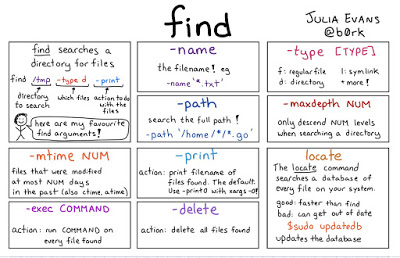 find
JULIA EVANS
@b0rk
find searches a
directory for files
find /tmp -type d -print
directory
to search
which files
action to do
with the
files
here are my favourite
find arguments!
-name
the filename! eg
-name '*.txt'
-type [TYPE]
f: regular file
l: symlink
d: directory
+ more!
-path
search the full path!
-path '/home/*/*.go'
-maxdepth NUM
only descend NUM levels
when searching a directory
-mtime NUM
files that were modified
at most NUM days
in the past (also ctime, atime)
-print
action: print filename of
files found. The default.
Use -print0 with xargs -0!
locate
The locate command
searches a database of
every file on your system.
good: faster than find
bad: can get out of date
$ sudo updatedb
updates the database
-exec COMMAND
action: run COMMAND on
every file found
-delete
action: delete all files found